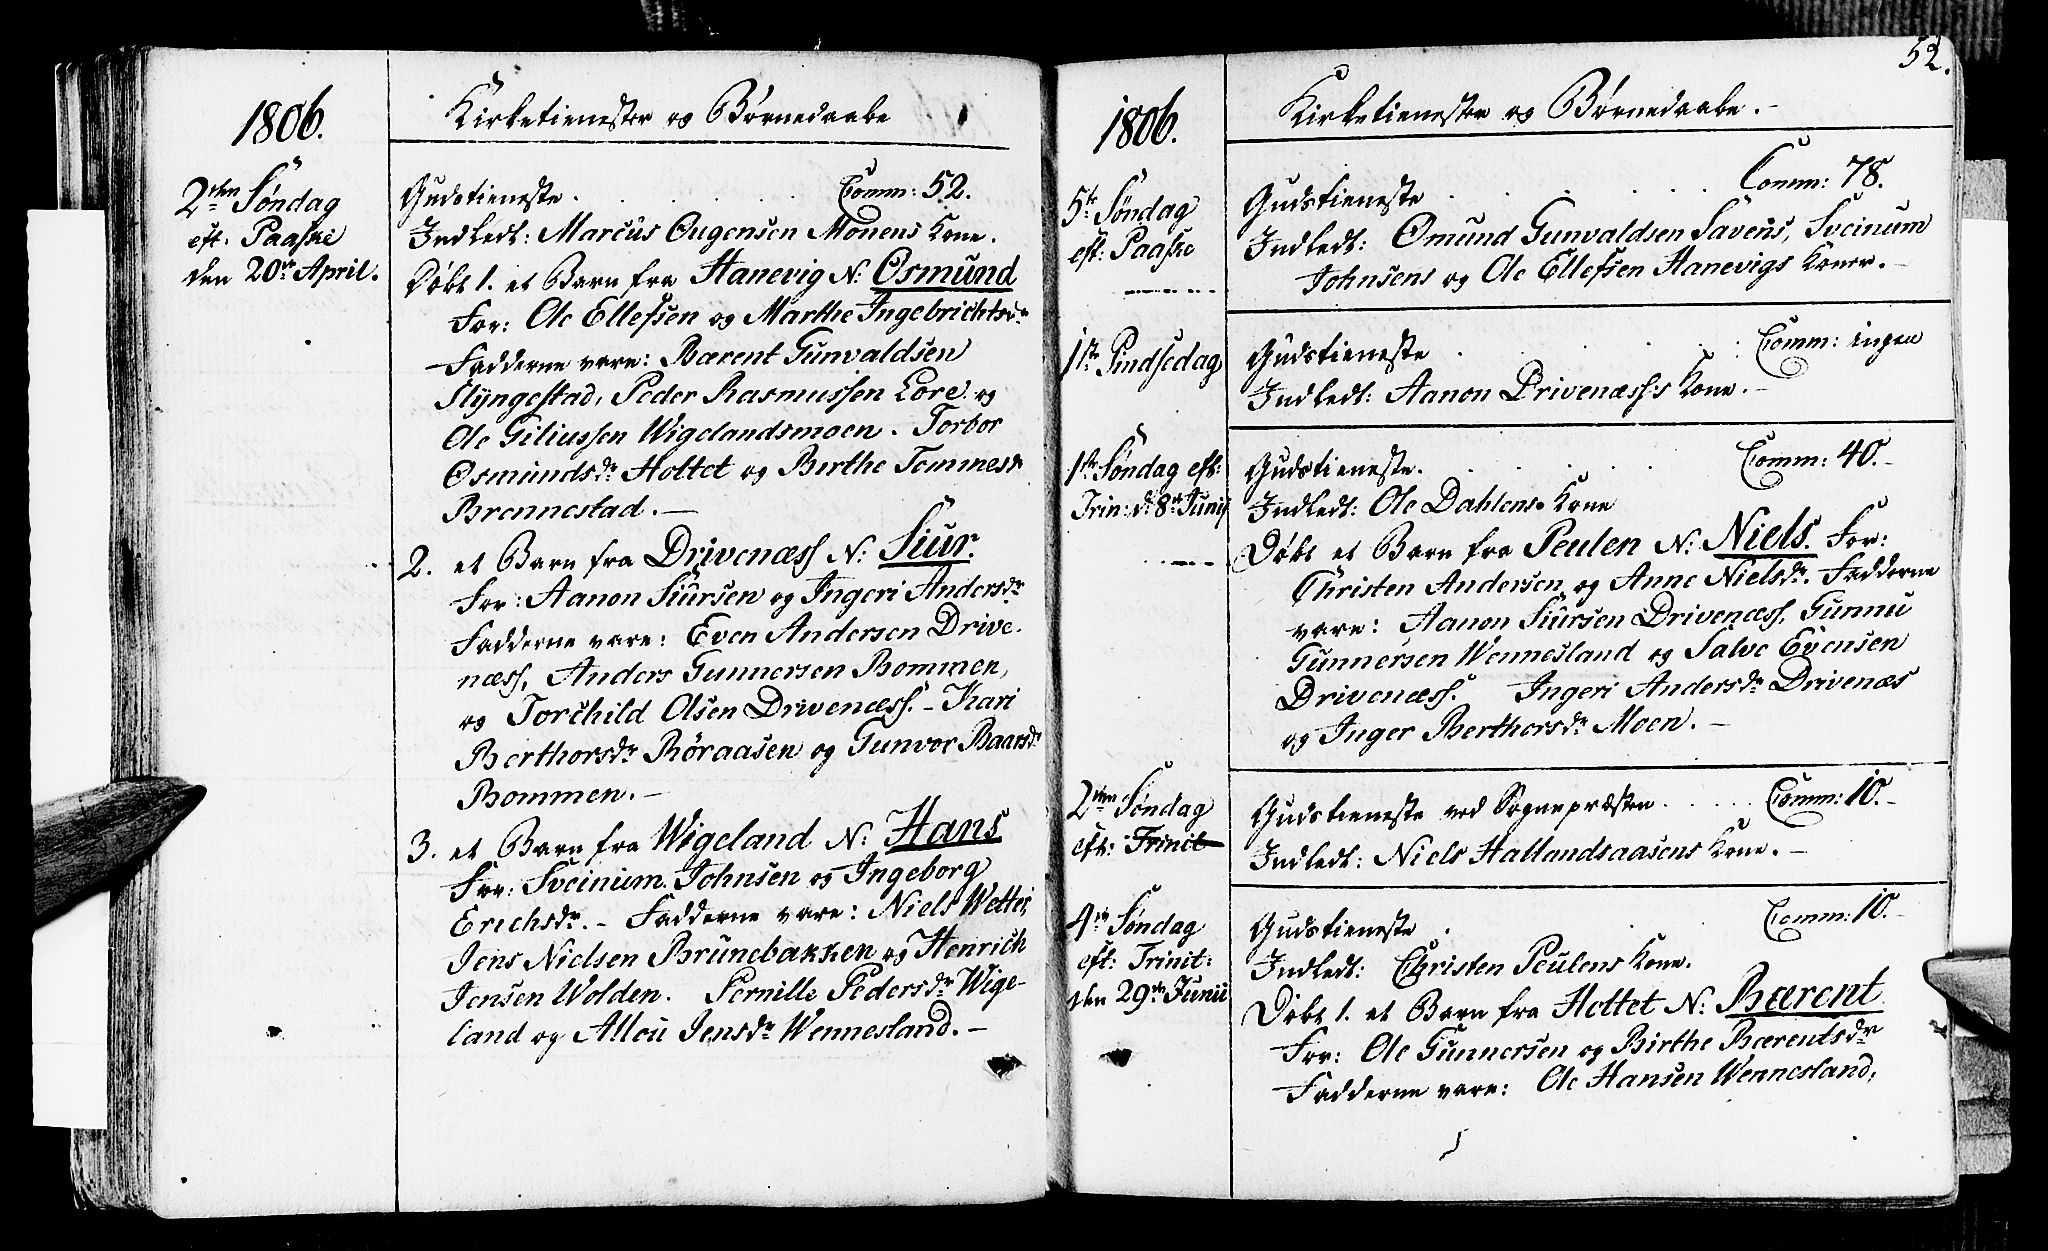 1806.
Kirketienester og Børnedaabe
2den Søndag
eft: Paaske
den 20de April.
Gudstieneste. Comm: 52.
Indledt: Marcus Ougensen Monens Kone.
Døbt 1. et Barn fra Hanevig N: Osmund
For: Ole Ellefsen og Marthe Ingebrichtsdr
Fadderne vare: Bærent Gunvaldsen
Slyngestad, Peder Rasmussen Lore og
Ole Giliussen Wigelandsmoen. Torbor
Osmundsdr Holtet og Birthe Tommesdr
Brennestad.—
2. et Barn fra Drivenæss N: Siur.
For: Aanon Siursen og Ingeri Andersdr
Fadderne vare: Even Andersen Drive-
næss, Anders Gunnersen Bommen,
og Torchild Olsen Drivenæss.- Kari
Berthorsdr Røraasen og Gunvor Baarsdr
Bommen.—
3. et Barn fra Wigeland N: Hans
For: Sveinum Johnsen og Ingeborg
Erichsdr.- Fadderne vare: Niels Wettei,
Jens Nielsen Brunebakken og Henrich
Jensen Wolden. Pernille Pedersdr Wige-
land og Alleu Jensdr Wennesland.—
52.
1806.
Kirketienester og Børnedaabe.-
5te Søndag
eft: Paaske
Gudstieneste Comm: 78.
Indledt: Omund Gunvaldsen Savens, Sveinum
Johnsens og Ole Ellefsen Hanevigs Koner.-
1ste Pindsedag
Gudstieneste Comm: ingen
Indledt: Aanon Drivenæss's Kone.-
1ste Søndag eft:
Trin: d: 8de Junij
Gudstieneste. Comm: 40.-
Indledt: Ole Dahlens Kone
Døbt et Barn fra Peulen N: Niels. For:
Christen Andersen og Anne Nielsdr. Fadderne
vare: Aanon Siursen Drivenæss, Gunnu
Gunnersen Wennesland og Salve Evensen
Drivenæss. Ingeri Andersdr Drivenæs
og Inger Berthorsdr Moen.—
2den Søndag
eft: Trinit
Gudstieneste ved Sognepræsten. Comm: 10.-
Indledt: Niels Hallandsaasens Kone.-
4de Søndag
eft: Trinit:
den 29de Junii
Gudstieneste. Comm: 10.-
Indledt: Christen Peulens Kone.
Døbt 1. et Barn fra Holtet N: Bærent
For: Ole Gunnersen og Birthe Bærentsdr
Fadderne vare: Ole Hansen Wennesland,